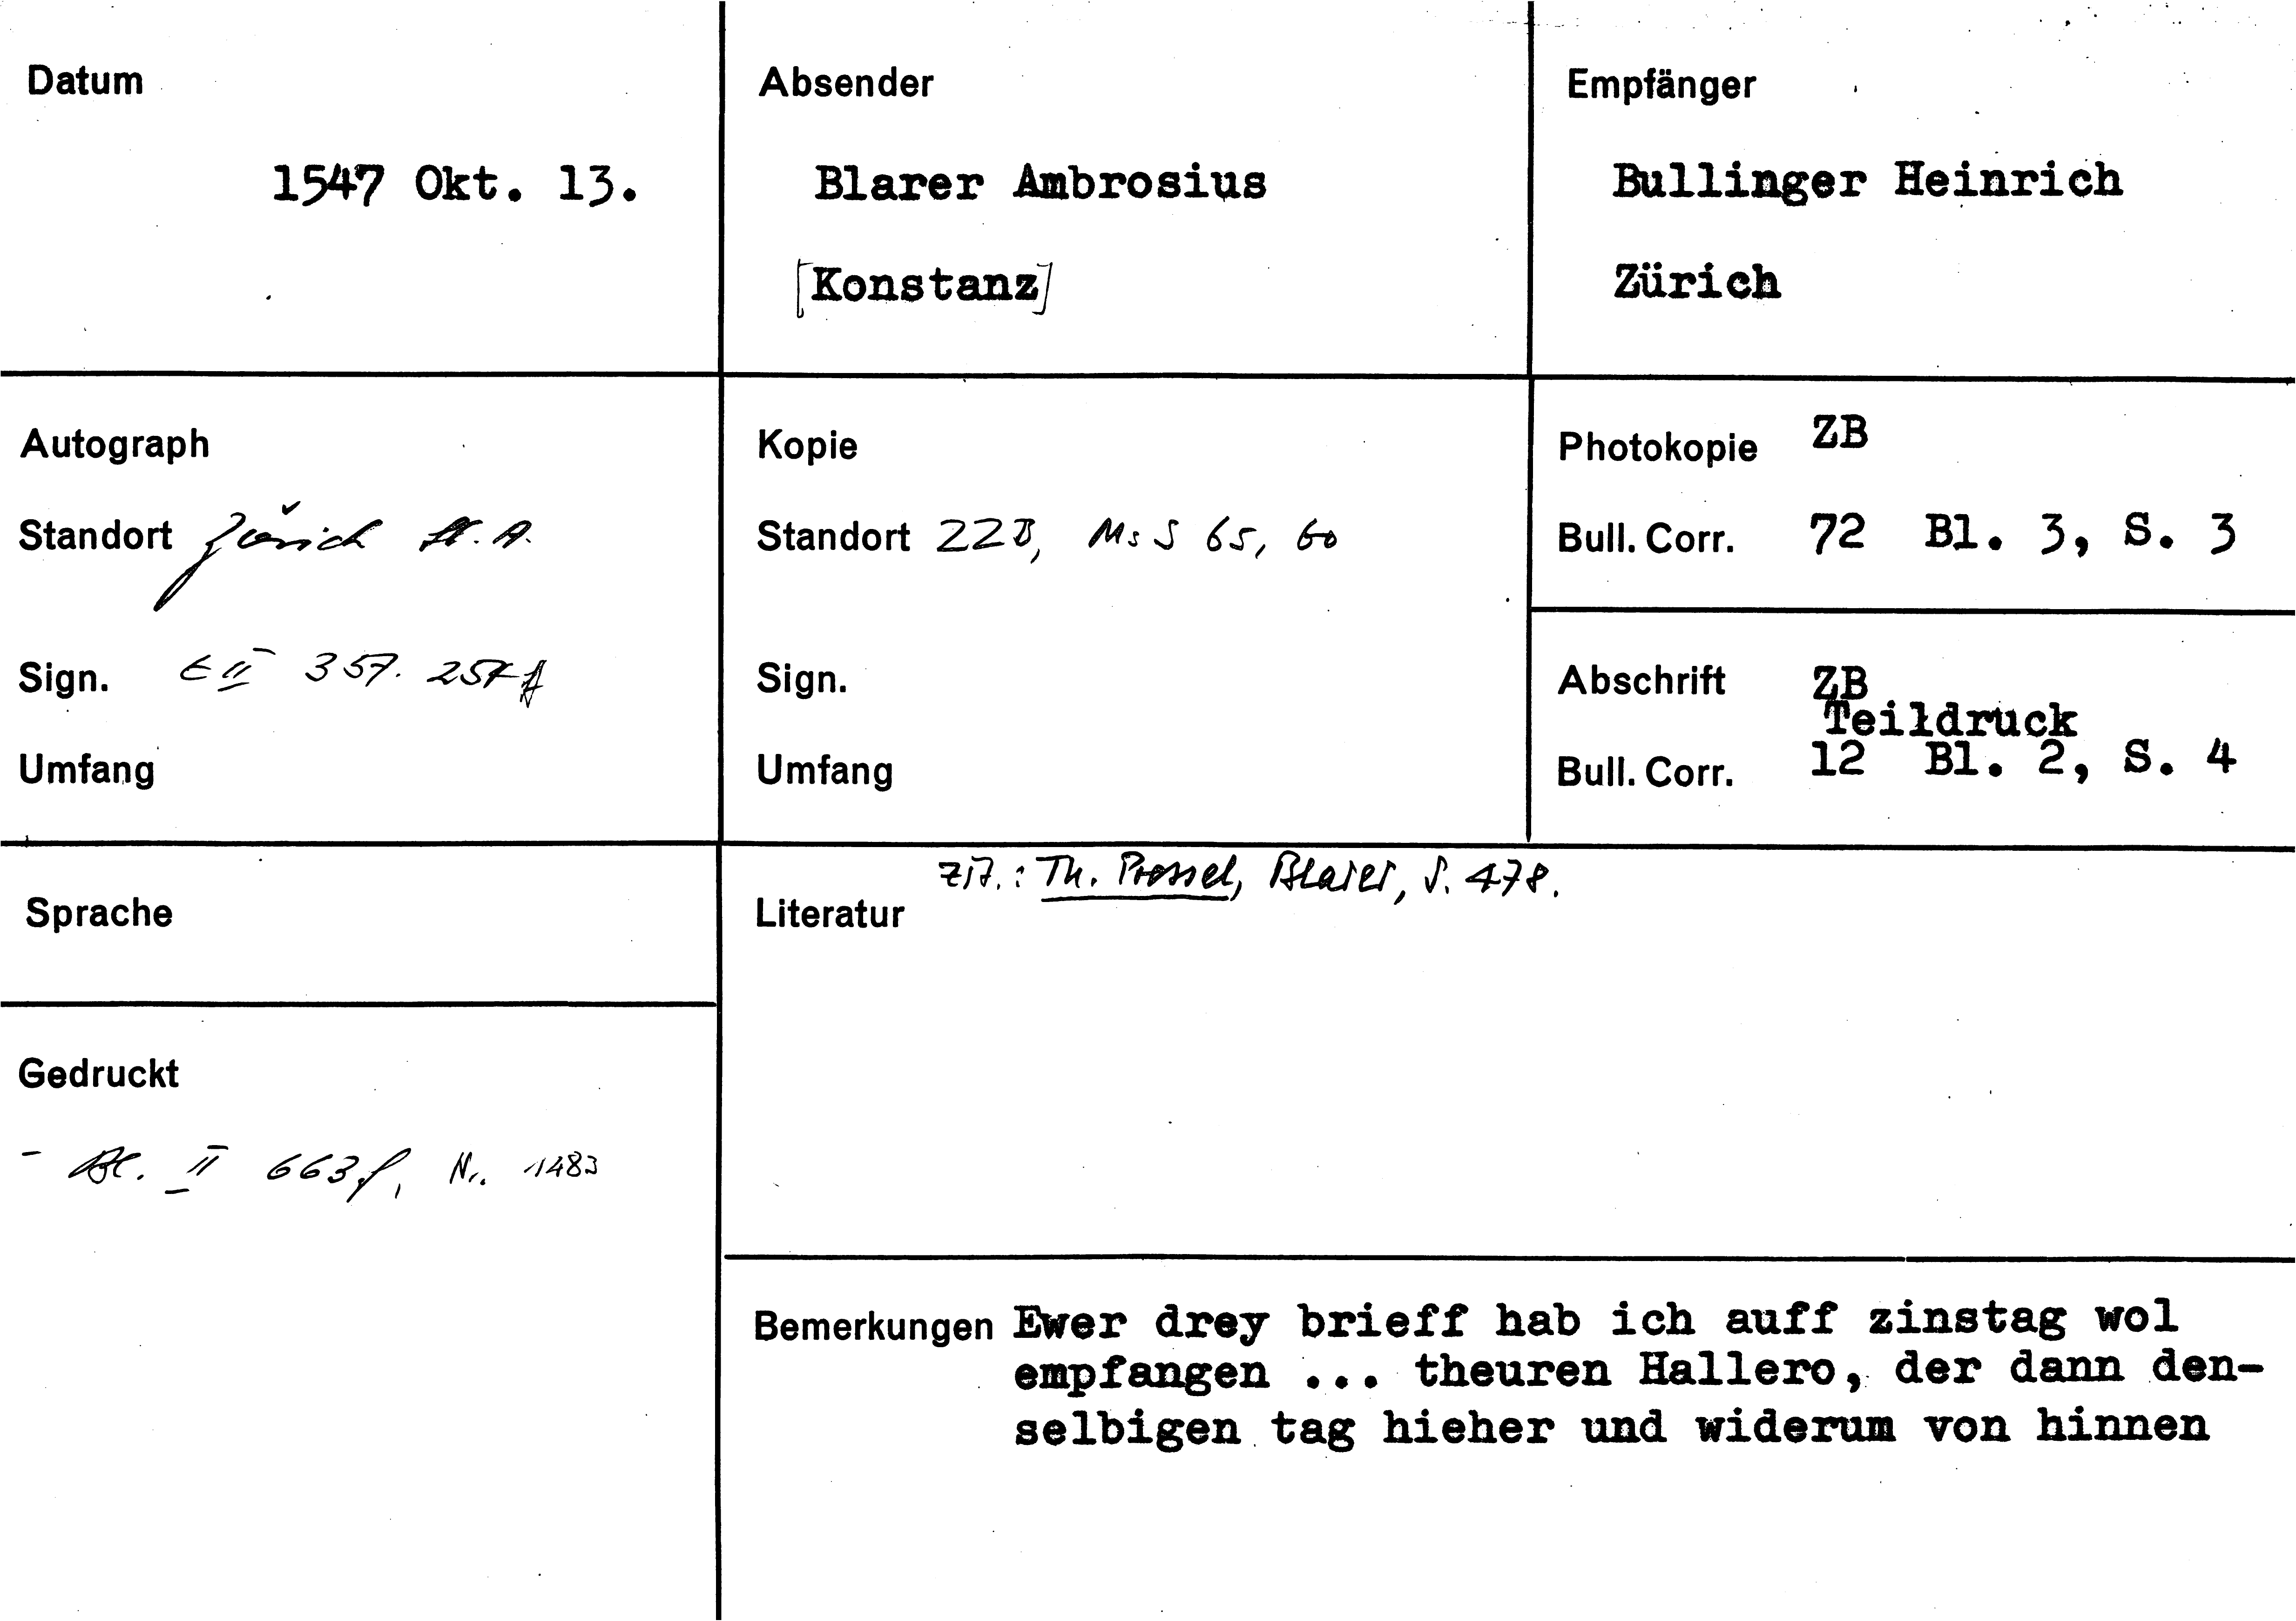 Datum
1547 Okt. 13.
Absender
Blarer Ambrosius
[Konstanz]
Empfänger
Bullinger Heinrich
Zürich
Autograph
Standort Zürich St. A.
Sign. E II 357. 257 ff
Umfang
Kopie
Standort ZZB, Ms S 65, 60
Sign.
Umfang
Photokopie ZB
Bull. Corr. 72 Bl. 3, S. 3
Abschrift ZB
Teildruck
Bull. Corr. 12 Bl. 2, S. 4
Sprache
Gedruckt
- Bl. II 663f, Nr. 1483
zit.: Th. Pressel, Blarer, S. 478.
Literatur
Bemerkungen Ewer drey brieff hab ich auff zinstag wol
empfangen ... theuren Hallero, der dann den-
selbigen tag hieher und widerum von hinnen